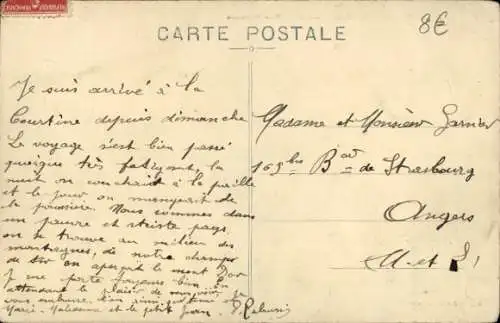 CARTE POSTALE
8€
Je suis arrivé à la
Courtine depuis dimanche
Le voyage s'est bien passé
quoique très fatigant, la
nuit on couchait à la paille
et le jour on mangeait de
la poussière. Nous sommes dans
un pauvre et triste pays,
on se trouve au milieu des
montagnes, de notre champ
de tir on aperçoit le mont Dor
Je me porte toujours bien. En
attendant le plaisir de vous voir, je
vous embrasse bien
Marie-Madeleine et le petit Jean
Madame et Monsieur Garnier
165bis Bard de Strasbourg
Angers
M-et-L